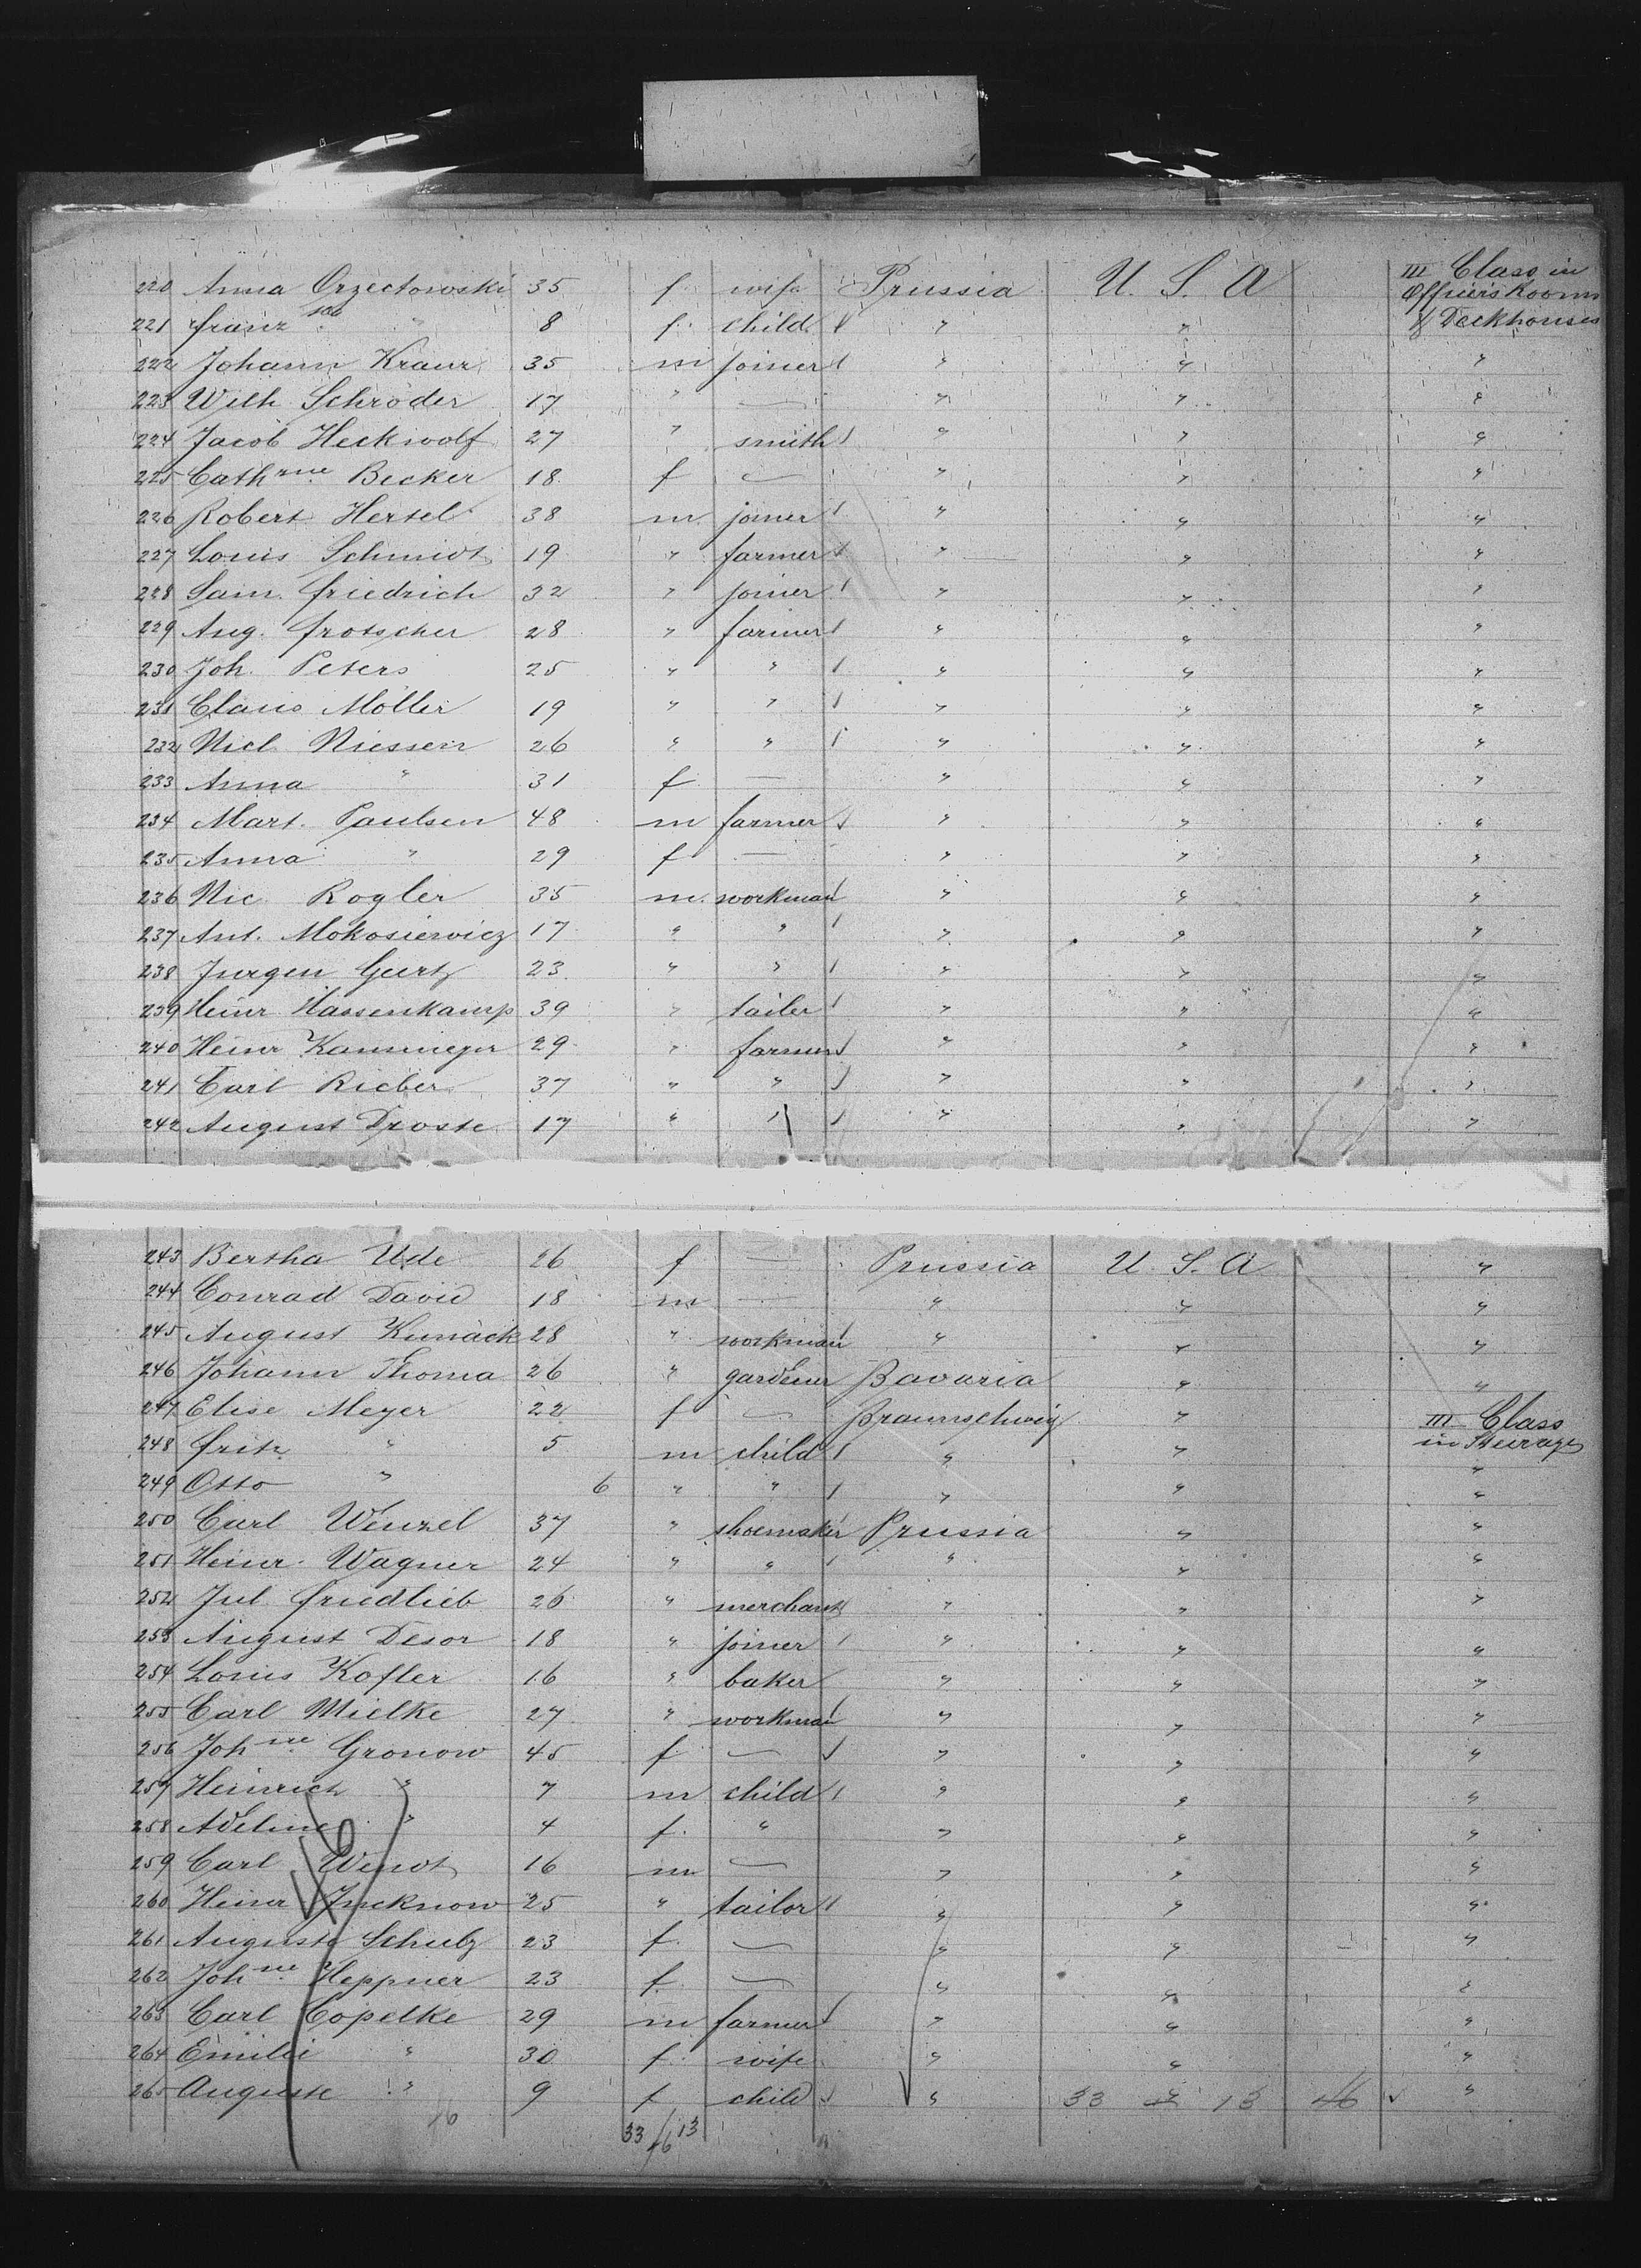 220 Anna Orzectowski 35 f wife Prussia U. S. A III Class in
Officer's Rooms
221 Franz sca " 8 f. child " " Deckhouses
222 Johann Kraur 35 m joiner " " "
223 Wilh Schröder 17 " — " " "
224 Jacob Heckwolf 27 " smith " " "
225 Cath rne Becker 18 f — " " "
226 Robert Hertel 38 m. joiner " " "
227 Louis Schmidt 19 " farmer " " "
228 Sam. Friedrich 32 " joiner " " "
229 Aug. Frotscher 28 " farmer " " "
230 Joh. Peters 25 " " " " "
231 Claus Möller 19 " " " " "
232 Nicl Niessen 26 " " " " "
233 Anna " 31 f — " " "
234 Mart. Paulsen 48 m farmer " " "
235 Anna " 29 f — " " "
236 Nic Rogler 35 m. workman " " "
237 Ant. Mokosiewicz 17 " " " " "
238 Jurgen Geertz 23 " " " " "
239 Heinr Hassenkamp 39 " tailer " " "
240 Heinr 29 " farmer " " "
241 Carl Rieber 37 " " " " "
242 August Droste 17 " " " " "
243 Bertha Ude 26 f — Prussia U. S. A "
244 Conrad David 18 m — " " "
245 August Kunack 28 " workman " " "
246 Johann Thoma 26 " gardener Bavaria " "
247 Elise Meyer 22 f — Braunschweig " III Class
248 Fritz " 5 m child " " in Steerage
249 Otto " 6 " " " " "
250 Carl Wenzel 37 " shoemaker Prussia " "
251 Heinr. Wagner 24 " " " " "
252 Jul Friedlieb 26 " merchant " " "
253 August Desor 18 " joiner " " "
254 Louis Kofler 16 " baker " " "
255 Carl Mielke 27 " workman " " "
256 Joh ne Gronow 45 f — " " "
257 Heinrich " 7 m child " " "
258 Adeline " 4 f. " " " "
259 Carl Wendt 16 m — " " "
260 Heinr 25 " tailor " " "
261 Auguste Schulz 23 f. — " " "
262 Joh ne Heppner 23 f. — " " "
263 Carl Copelke 29 m farmer " " "
264 Emilie " 30 f. wife " " "
265 Auguste " 9 f child " 33 13 46 "
33 46 13